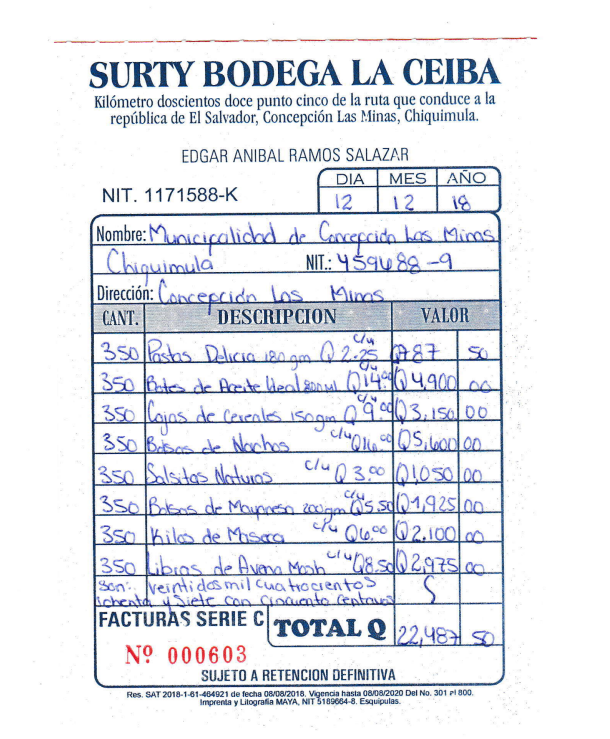 SURTY BODEGA LA CEIBA
Kilómetro doscientos doce punto cinco de la ruta que conduce a la
república de El Salvador, Concepción Las Minas, Chiquimula.
EDGAR ANIBAL RAMOS SALAZAR
NIT. 1171588-K
DIA MES AÑO
12 12 18
Nombre: Municipalidad de Concepción Las Minas
Chiquimula NIT.: 459488-9
Dirección: Concepción Las Minas
CANT. DESCRIPCION VALOR
350 Pastas Delicia 180 gm c/u Q 2.25 Q 787 50
350 Botes de Aceite Ideal 800 ml c/u Q14.00 Q 4,900 00
350 Cajas de Cereales 150gm c/u Q 9.00 Q 3,150 00
350 Bolsas de Nachos c/u Q16.00 Q 5,600 00
350 Salsitas Naturas c/u Q 3.00 Q 1,050 00
350 Bolsas de Mayonesa 200gm c/u Q5.50 Q 1,925 00
350 Kilos de Maseca c/u Q6.00 Q 2,100 00
350 Libras de Avena Mosh c/u Q8.50 Q 2,975 00
Son: Veintidosmil cuatrocientos
ochenta y Siete con Cincuenta Centavos
FACTURAS SERIE C TOTAL Q 22,487 50
Nº 000603
SUJETO A RETENCION DEFINITIVA
Res. SAT 2018-1-61-464921 de fecha 08/08/2018. Vigencia hasta 08/08/2020 Del No. 301 al 800.
Imprenta y Litografía MAYA, NIT 5189664-8. Esquipulas.